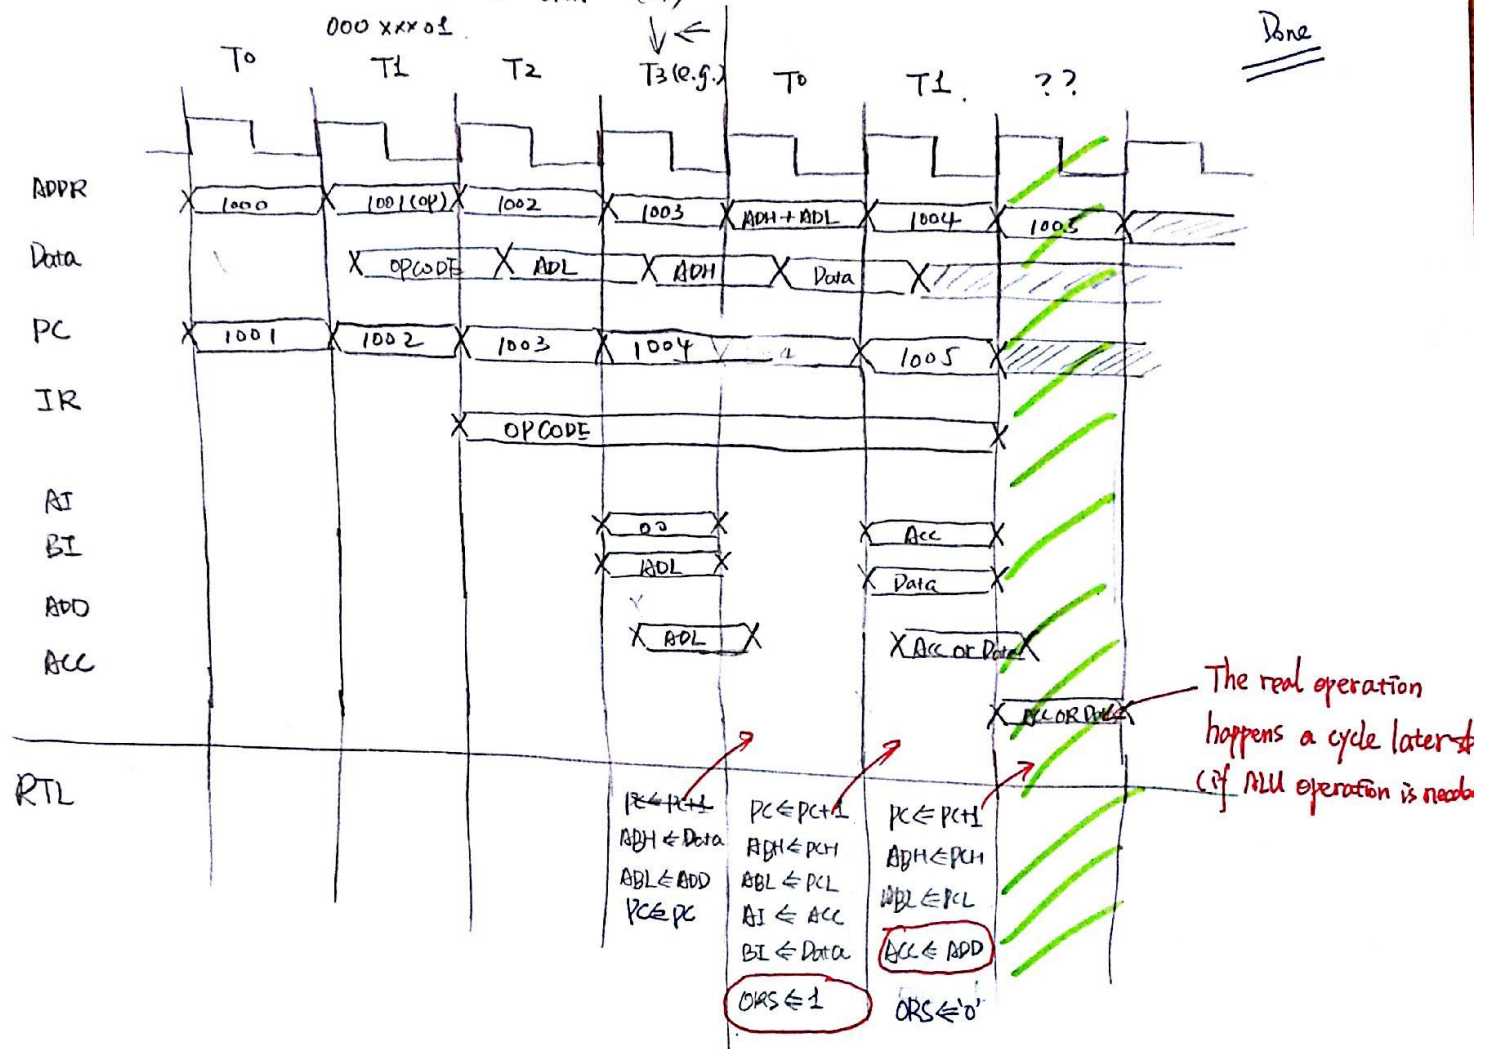 000 xxx 01
Done
T0 T1 T2 T3 (e.g.) T0 T1. ??
ADDR 1000 1001(OP) 1002 1003 ADH+ADL 1004 1005
Data OPCODE ADL ADH Data
PC 1001 1002 1003 1004 1005
IR OPCODE
AI 00 Acc
BI ADL Data
ADD ADL Acc OR Data
ACC ACC OR Data
The real operation
happens a cycle later
(if ALU operation is
RTL
PC⇐PC+1 PC⇐PC+1 PC⇐PC+1
ABH⇐Data ABH⇐PCH ABH⇐PCH
ABL⇐ADD ABL⇐PCL ABL⇐PCL
PC⇐PC AI⇐ACC ACC⇐ADD
BI⇐Data
ORS⇐1 ORS⇐'0'